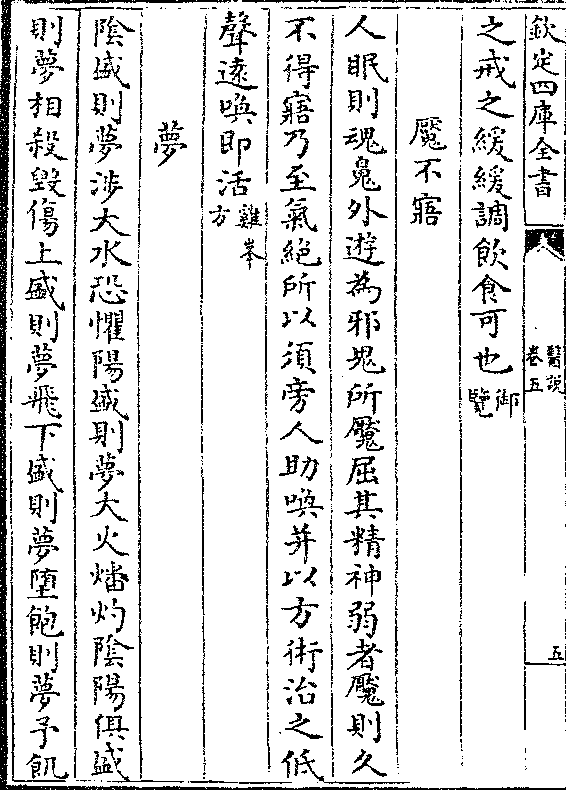 欽定四庫全書
醫說
卷五
五
之戒之緩緩調飲食可也御覽
魘不寤
人眠則魂魄外遊為邪鬼所魘屈其精神弱者魘則久
不得寤乃至氣絶所以須旁人助喚并以方術治之低
聲遠喚即活雞峯方
夢
陰盛則夢涉大水恐懼陽盛則夢大火燔灼陰陽俱盛
則夢相殺毀傷上盛則夢飛下盛則夢墮飽則夢予飢